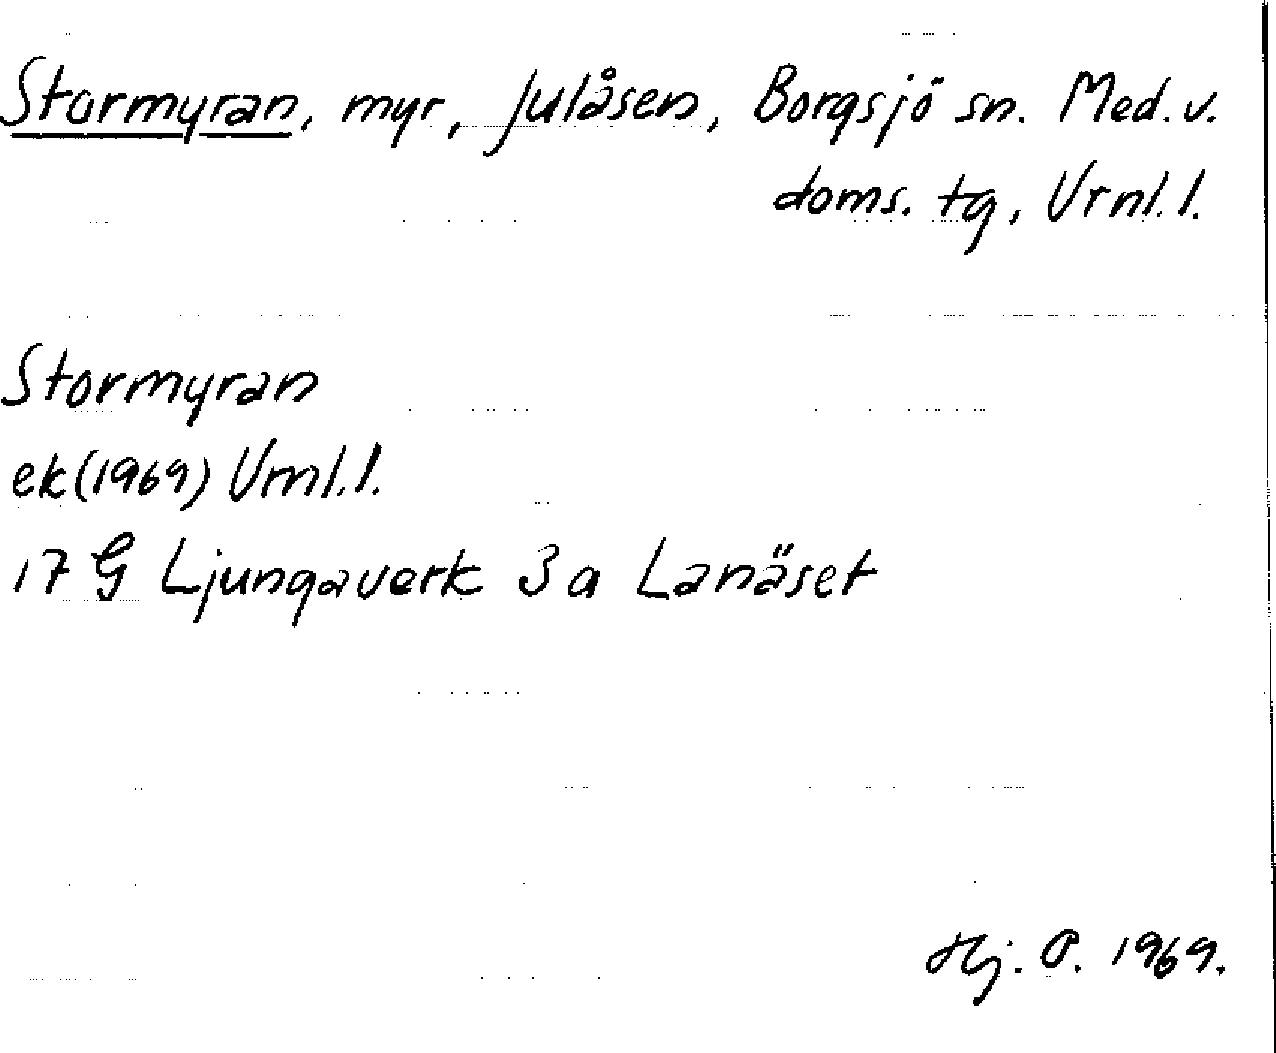 Stormyran, myr, Julåsen, Borgsjö sn. Med. v.
doms. tg, Vrnl. l.
Stormyran
ek (1969) Vrnl. l.
17 G Ljungaverk 3 a Lanäset
Hj. P. 1969.